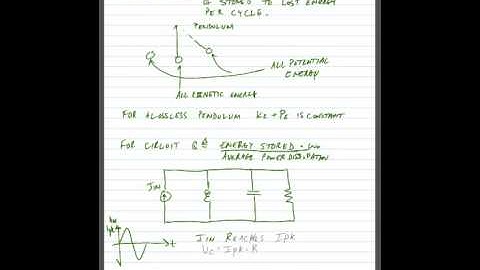 OF STORED TO LOST ENERGY
PER CYCLE.
PENDULUM
ALL POTENTIAL
ENERGY
ALL KINETIC ENERGY
FOR A LOSSLESS PENDULUM KE + PE IS CONSTANT
FOR CIRCUIT Q ≜ ENERGY STORED · ω₀
AVERAGE POWER DISSIPATION
JIN
Ipk
t
JIN REACHES Ipk
Uc = Ipk · R